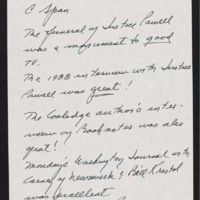 C Span
The Funeral of Justice Powell
was a monument to good
TV.
The 1988 interview with Justice
Powell was great!
The Coolidge author's inter-
view on Booknotes was also
great!
Monday's Washington Journal with
Carney of Newsweek & Bill Kristol
was excellent